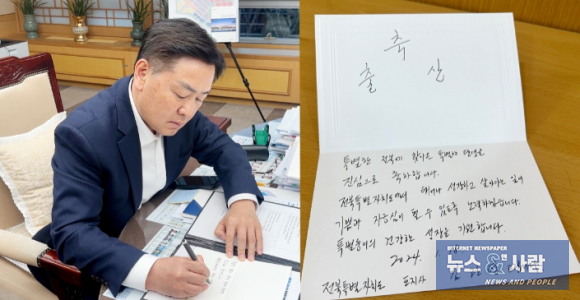 축
출 산
특별한 전북에 찾아온 특별한 탄생을
진심으로 축하합니다.
전북특별자치도에서 태어나 성장하고 살아가는 일이
기쁨과 자긍심이 될 수 있도록 노력하겠습니다.
특별둥이의 건강한 성장을 기원합니다.
2024.
전북특별자치도 도지사
INTERNET NEWSPAPER
뉴스&사람
NEWS AND PEOPLE